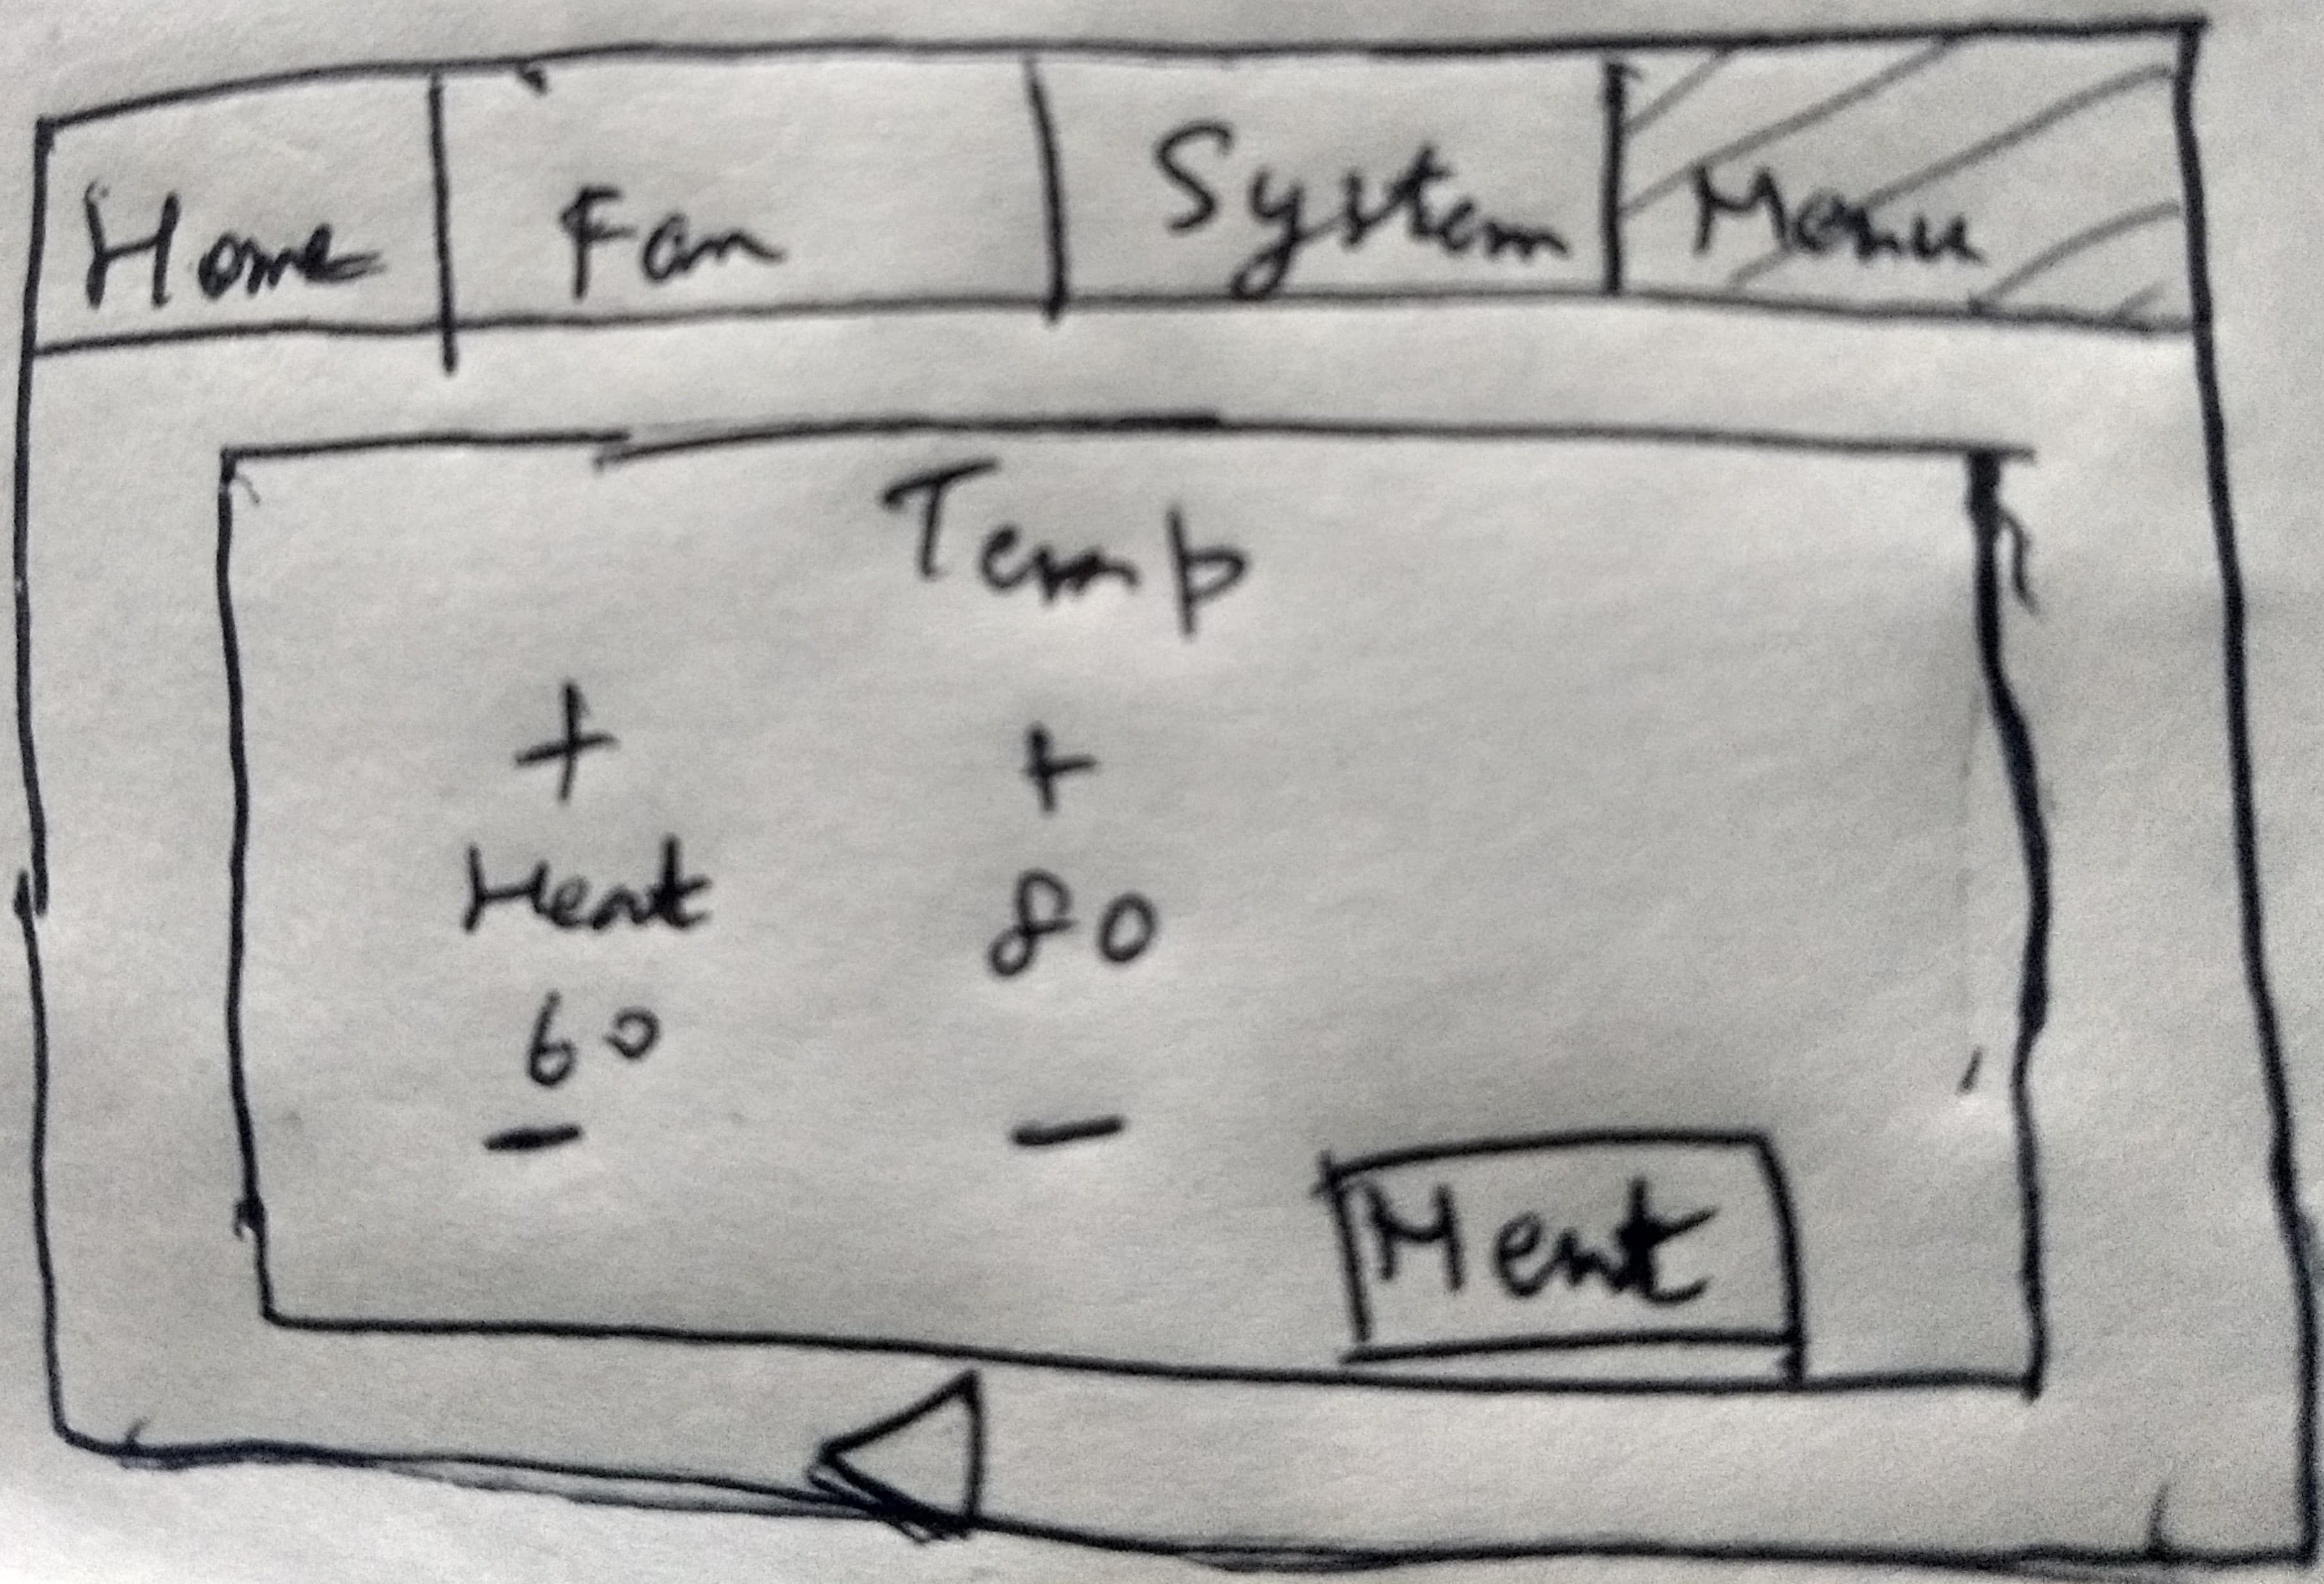 Home Fan System Menu
Temp
+ +
Heat 80
60
- -
Heat